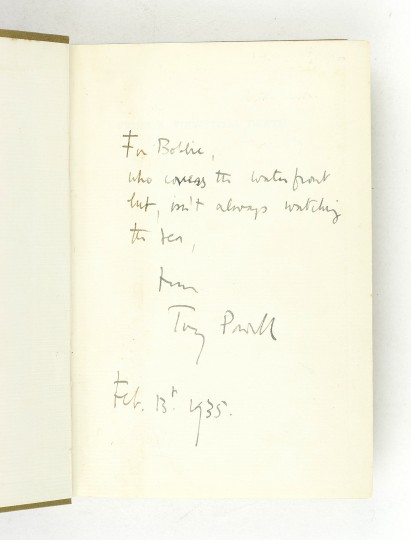 For Bobbie,
who covers the waterfront
but, isn't always watching
the sea,
from
Tony Powell
Feb. 13th. 1935.